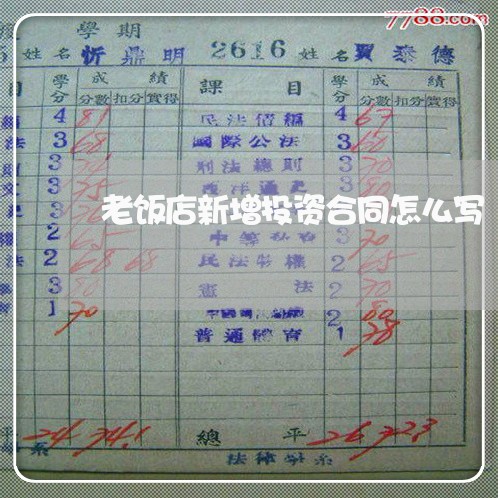 7788.com
學期
姓名 忻鼎明 2616 姓名 賈泰德
目 學分 成績 課目 學分 成績
分數 扣分 實得 分數 扣分 實得
4 81 民法債編 4 67
法 3 68 國際公法 3 60
3 刑法總則 3 70
3 75 西洋通史 3 80
老饭店新增投资合同怎么写
2 65 3 70
法 2 68 68 民法物權 2 65
3 80 憲法 2 70
1 70 2 80
普通體育 1 78
平 24 74.1 總平 26 72.3
系 法律學系